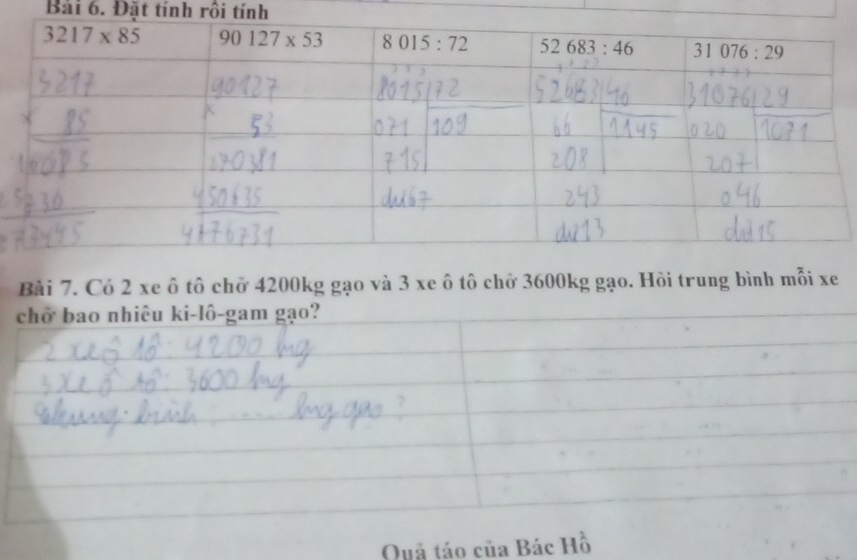 Bài 6. Đặt tính rồi tính
3217 x 85 90 127 x 53 8 015 : 72 52 683 : 46 31 076 : 29
3217 90127 8015 72 52683 46 31076 29
x 85 x 53 071 109 66 1145 020 1071
16085 270381 715 208 207
25736 450635 dư 67 243 046
273445 4776731 dư 13 dư 15
Bài 7. Có 2 xe ô tô chở 4200kg gạo và 3 xe ô tô chở 3600kg gạo. Hỏi trung bình mỗi xe
chở bao nhiêu ki-lô-gam gạo?
2 xe ô tô: 4200 kg
3 xe ô tô: 3600 kg
bình: ..... kg gạo?
Quả táo của Bác Hồ